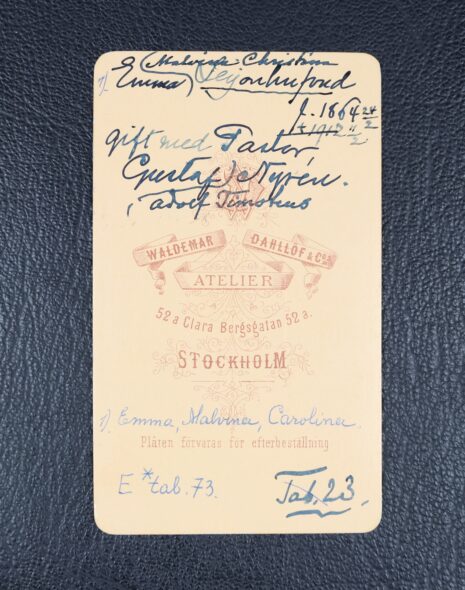 (Malvina Christina
7) Emma) Leijonhufvud
f. 1864 24/2
† 1912 4/2
gift med Pastor
Gustaf Nyrén.
( Adolf Timoteus
WALDEMAR DAHLLÖF & C:o
ATELIER
52 a Clara Bergsgatan 52 a.
STOCKHOLM
7) Emma, Malvina, Carolina.
Plåten förvaras för efterbeställning
E * tab. 73. Tab. 23.